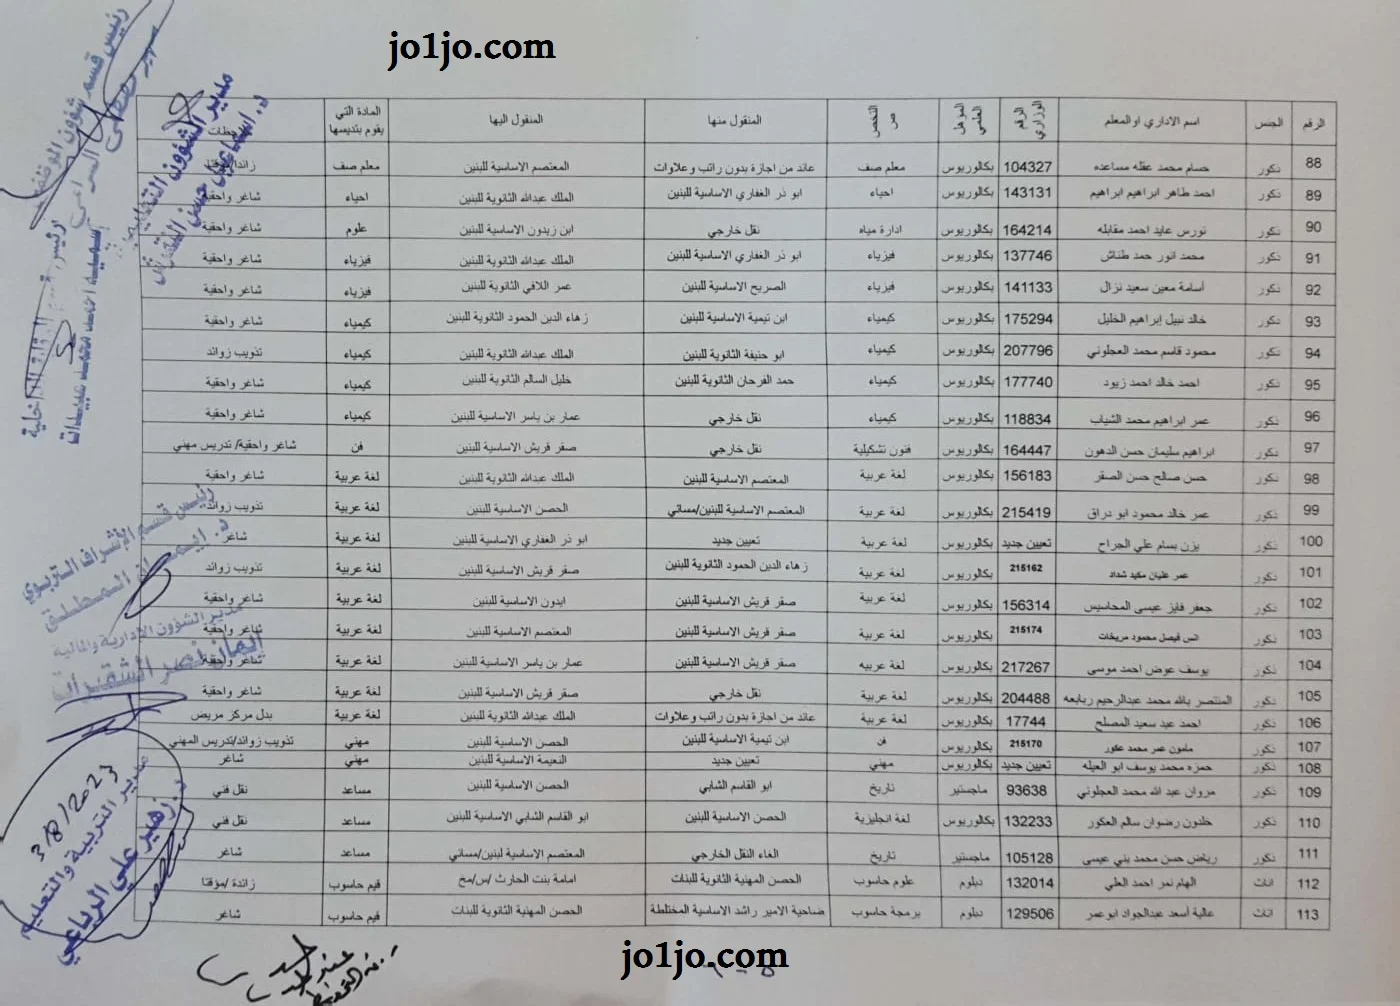 jo1jo.com
الرقم الجنس اسم الاداري او المعلم الرقم الوزاري المؤهل العلمي التخصص المنقول منها المنقول اليها المادة التي يقوم بتديسها
88 ذكور حسام محمد عقله مساعده 104327 بكالوريوس معلم صف عائد من اجازة بدون راتب وعلاوات المعتصم الاساسية للبنين معلم صف
89 ذكور احمد طاهر ابراهيم ابراهيم 143131 بكالوريوس احياء ابو ذر الغفاري الاساسية للبنين الملك عبدالله الثانوية للبنين احياء شاغر واحقية
90 ذكور نورس عايد احمد مقابله 164214 بكالوريوس ادارة مياه نقل خارجي ابن زيدون الاساسية للبنين علوم شاغر واحقية
91 ذكور محمد انور حمد طناش 137746 بكالوريوس فيزياء ابو ذر الغفاري الاساسية للبنين الملك عبدالله الثانوية للبنين فيزياء شاغر واحقية
92 ذكور أسامة معين سعيد نزال 141133 بكالوريوس فيزياء الصريح الاساسية للبنين عمر اللافي الثانوية للبنين فيزياء شاغر واحقية
93 ذكور خالد نبيل إبراهيم الخليل 175294 بكالوريوس كيمياء ابن تيمية الاساسية للبنين زهاء الدين الحمود الثانوية للبنين كيمياء شاغر واحقية
94 ذكور محمود قاسم محمد العجلوني 207796 بكالوريوس كيمياء ابو حنيفة الثانوية للبنين الملك عبدالله الثانوية للبنين كيمياء تذويب زوائد
95 ذكور احمد خالد احمد زيود 177740 بكالوريوس كيمياء حمد الفرحان الثانوية للبنين خليل السالم الثانوية للبنين كيمياء شاغر واحقية
96 ذكور عمر ابراهيم محمد الشياب 118834 بكالوريوس كيمياء نقل خارجي عمار بن ياسر الاساسية للبنين كيمياء شاغر واحقية
97 ذكور ابراهيم سليمان حسن الدهون 164447 بكالوريوس فنون تشكيلية نقل خارجي صقر قريش الاساسية للبنين فن شاغر واحقية/ تدريس مهني
98 ذكور حسن صالح حسن الصقر 156183 بكالوريوس لغة عربية المعتصم الاساسية للبنين الملك عبدالله الثانوية للبنين لغة عربية شاغر واحقية
99 ذكور عمر خالد محمود ابو دراق 215419 بكالوريوس لغة عربية المعتصم الاساسية للبنين/مسائي الحصن الاساسية للبنين لغة عربية تذويب زوائد
100 ذكور يزن بسام علي الجراح تعيين جديد بكالوريوس لغة عربية تعيين جديد ابو ذر الغفاري الاساسية للبنين لغة عربية شاغر
101 ذكور عمر عليان مكيد شداد 215162 بكالوريوس لغة عربية زهاء الدين الحمود الثانوية للبنين صقر قريش الاساسية للبنين لغة عربية تذويب زوائد
102 ذكور جعفر فايز عيسى المحاسيس 156314 بكالوريوس لغة عربية صقر قريش الاساسية للبنين ايدون الاساسية للبنين لغة عربية شاغر واحقية
103 ذكور انس فيصل محمود مريخات 215174 بكالوريوس لغة عربية صقر قريش الاساسية للبنين المعتصم الاساسية للبنين لغة عربية شاغر واحقية
104 ذكور يوسف عوض احمد موسى 217267 بكالوريوس لغة عربيه صقر قريش الاساسية للبنين عمار بن ياسر الاساسية للبنين لغة عربية شاغر واحقية
105 ذكور المنتصر بالله محمد عبدالرحيم ربابعه 204488 بكالوريوس لغة عربية نقل خارجي صقر قريش الاساسية للبنين لغة عربية شاغر واحقية
106 ذكور احمد عبد سعيد المصلح 17744 بكالوريوس لغة عربية عائد من اجازة بدون راتب وعلاوات الملك عبدالله الثانوية للبنين لغة عربية بدل مركز مريض
107 ذكور مامون عمر محمد عكور 215170 بكالوريوس فن ابن تيمية الاساسية للبنين الحصن الاساسية للبنين مهني تذويب زوائد/تدريس المهني
108 ذكور حمزه محمد يوسف ابو العيله تعيين جديد بكالوريوس مهني تعيين جديد النعيمة الاساسية للبنين مهني شاغر
109 ذكور مروان عبد الله محمد العجلوني 93638 ماجستير تاريخ ابو القاسم الشابي الحصن الاساسية للبنين مساعد نقل فني
110 ذكور خلدون رضوان سالم العكور 132233 بكالوريوس لغة انجليزية الحصن الاساسية للبنين ابو القاسم الشابي الاساسية للبنين مساعد نقل فني
111 ذكور رياض حسن محمد بني عيسى 105128 ماجستير تاريخ الغاء النقل الخارجي المعتصم الاساسية لبنين/مسائي مساعد شاغر
112 اناث الهام نمر احمد العلي 132014 دبلوم علوم حاسوب الحصن المهنية الثانوية للبنات امامة بنت الحارث /س/مخ قيم حاسوب زائدة /مؤقتا
113 اناث عالية أسعد عبدالجواد ابوعمر 129506 دبلوم برمجة حاسوب ضاحية الامير راشد الاساسية المختلطة الحصن المهنية الثانوية للبنات قيم حاسوب شاغر
رئيس قسم شؤون الموظفين
مدير الشؤون التعليمية
رئيس قسم الإشراف التربوي
مدير الشؤون الإدارية والمالية
ايمان نصر الشقيرات
3/8/2023
مدير التربية والتعليم
د. زهير علي الرباعي
jo1jo.com